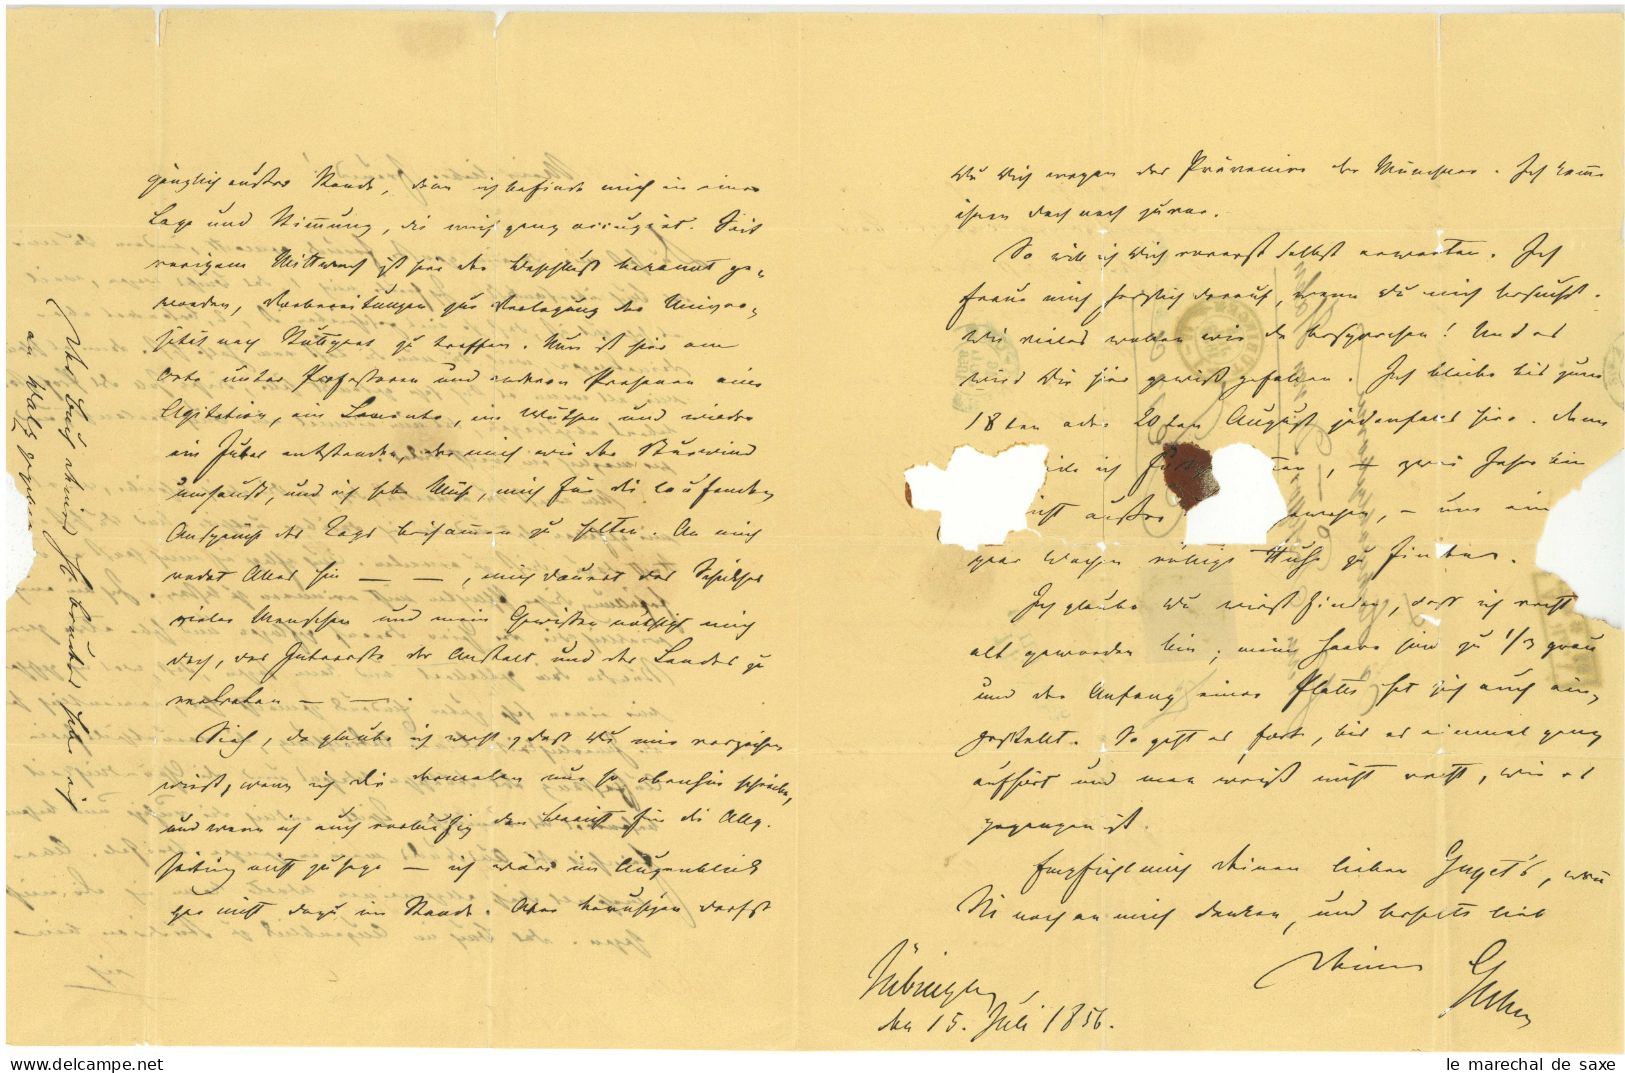 gänzlich außer Stande, denn ich befinde mich in einer
Lage und Stimmung, die mich ganz occupirt. Seit
vorigem Mittwoch ist hier der Beschluß bekannt ge-
worden, Vorbereitungen zur Verlegung der Univer-
sität nach Stuttgart zu treffen. Nun ist hier am
Orte unter Professoren und anderen Personen eine
Agitation, ein Lamento, ein Wüthen und wieder
ein Jubel entstanden, der mich wie der Sturmwind
umsaust, und ich habe Mühe, mich für die laufenden
Ansprüche des Tags beisammen zu halten. An mich
redet Alles hin — —, mich dauert das Schicksal
vieler Menschen und mein Gewissen nöthigt mich
doch, das Interesse der Anstalt und des Landes zu
vertreten — —.
Sieh, da glaube ich recht, daß Du mir verzeihen
wirst, wenn ich Dir dermalen nur so obenhin schreibe,
und wenn ich auch vorläufig den Bericht für die Allg.
Zeitung nicht zusage — ich wäre im Augenblick
gar nicht dazu im Stande. Aber beruhigen darfst
Das Buch Deines H. Bruders habe ich
an Walz gegeben
Du Dich wegen des Prävenire der Münchner. Ich komme
ihnen doch noch zuvor.
So will ich Dich vorerst selbst erwarten. Ich
freue mich herzlich darauf, wenn Du mich besuchst.
Wie vieles wollen wir da besprechen! Und es
wird Dir hier gewiß gefallen. Ich bleibe bis zum
18ten oder 20ten August jedenfalls hier. Dann
ich zwei Jahre bin
nicht außer gewesen, — um ein
paar Wochen ruhige Muße zu finden.
Ich glaube Du wirst finden, daß ich recht
alt geworden bin; meine Haare sind zu 1/3 grau
und der Anfang einer Platte hat sich auch ein-
gestellt. So geht es fort, bis es einmal ganz
aufhört und man weiß nicht recht, wie es
gegangen ist.
Empfiehl mich Deinen lieben, wenn
Sie noch an mich denken, und behalte lieb
Deinen
Tübingen,
den 15. Juli 1856.
le marechal de saxe